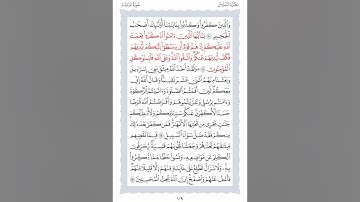 الجزء السادس سورة المائدة
وَالَّذِينَ كَفَرُوا وَكَذَّبُوا بِآيَاتِنَا أُولَئِكَ أَصْحَابُ
الْجَحِيمِ ١٠ يَا أَيُّهَا الَّذِينَ آمَنُوا اذْكُرُوا نِعْمَتَ
اللَّهِ عَلَيْكُمْ إِذْ هَمَّ قَوْمٌ أَن يَبْسُطُوا إِلَيْكُمْ أَيْدِيَهُمْ
فَكَفَّ أَيْدِيَهُمْ عَنكُمْ وَاتَّقُوا اللَّهَ وَعَلَى اللَّهِ فَلْيَتَوَكَّلِ
الْمُؤْمِنُونَ ١١ وَلَقَدْ أَخَذَ اللَّهُ مِيثَاقَ بَنِي إِسْرَائِيلَ
وَبَعَثْنَا مِنْهُمُ اثْنَيْ عَشَرَ نَقِيبًا وَقَالَ اللَّهُ إِنِّي
مَعَكُمْ لَئِنْ أَقَمْتُمُ الصَّلَاةَ وَآتَيْتُمُ الزَّكَاةَ
وَآمَنتُم بِرُسُلِي وَعَزَّرْتُمُوهُمْ وَأَقْرَضْتُمُ اللَّهَ قَرْضًا
حَسَنًا لَّأُكَفِّرَنَّ عَنكُمْ سَيِّئَاتِكُمْ وَلَأُدْخِلَنَّكُمْ
جَنَّاتٍ تَجْرِي مِن تَحْتِهَا الْأَنْهَارُ فَمَن كَفَرَ بَعْدَ ذَلِكَ
مِنكُمْ فَقَدْ ضَلَّ سَوَاءَ السَّبِيلِ ١٢ فَبِمَا نَقْضِهِم
مِّيثَاقَهُمْ لَعَنَّاهُمْ وَجَعَلْنَا قُلُوبَهُمْ قَاسِيَةً يُحَرِّفُونَ
الْكَلِمَ عَن مَّوَاضِعِهِ وَنَسُوا حَظًّا مِّمَّا ذُكِّرُوا بِهِ
وَلَا تَزَالُ تَطَّلِعُ عَلَى خَائِنَةٍ مِّنْهُمْ إِلَّا قَلِيلًا مِّنْهُمْ
فَاعْفُ عَنْهُمْ وَاصْفَحْ إِنَّ اللَّهَ يُحِبُّ الْمُحْسِنِينَ ١٣
١٠٩